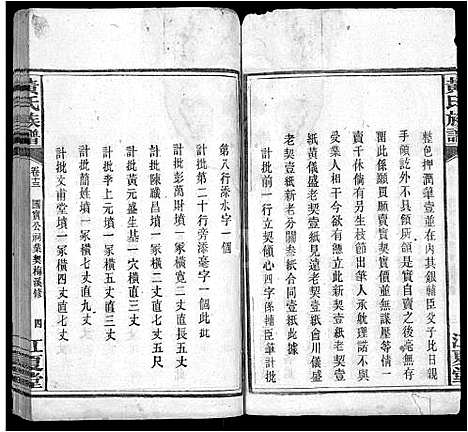 黃氏族譜
整色押潤筆壹並在其內銀雜臣父子比日親
手領訖外不具領所領是實自賣之後毫無存
圖此係願買願賣實契實價並無謀壓等情一
賣千休倘有另生枝節出筆人承躭理落不與
受業人相干今欲有憑立此新契壹紙
紙黃儀盛老契壹紙見遠老契壹紙會川儀盛
老契壹紙新老分關叁紙合同壹紙此據
計批前二行立契傾心四字係雜臣筆計批
江夏堂
第八行添水字一個
計批第二十行旁添毫字一個此批
計批彭萬財墳一冢橫寬二丈直長五丈
計批陳職昌墳一冢橫二丈直七丈五尺
計批黃元盛生基一穴橫直三丈
計批李上元墳一冢橫五丈直三丈
計批簡姓墳一冢橫七丈直九丈
計批文甫堂墳一冢橫四丈直七丈
黃氏族譜
卷十三
國寶公祠業契梅溪修
四
江夏堂